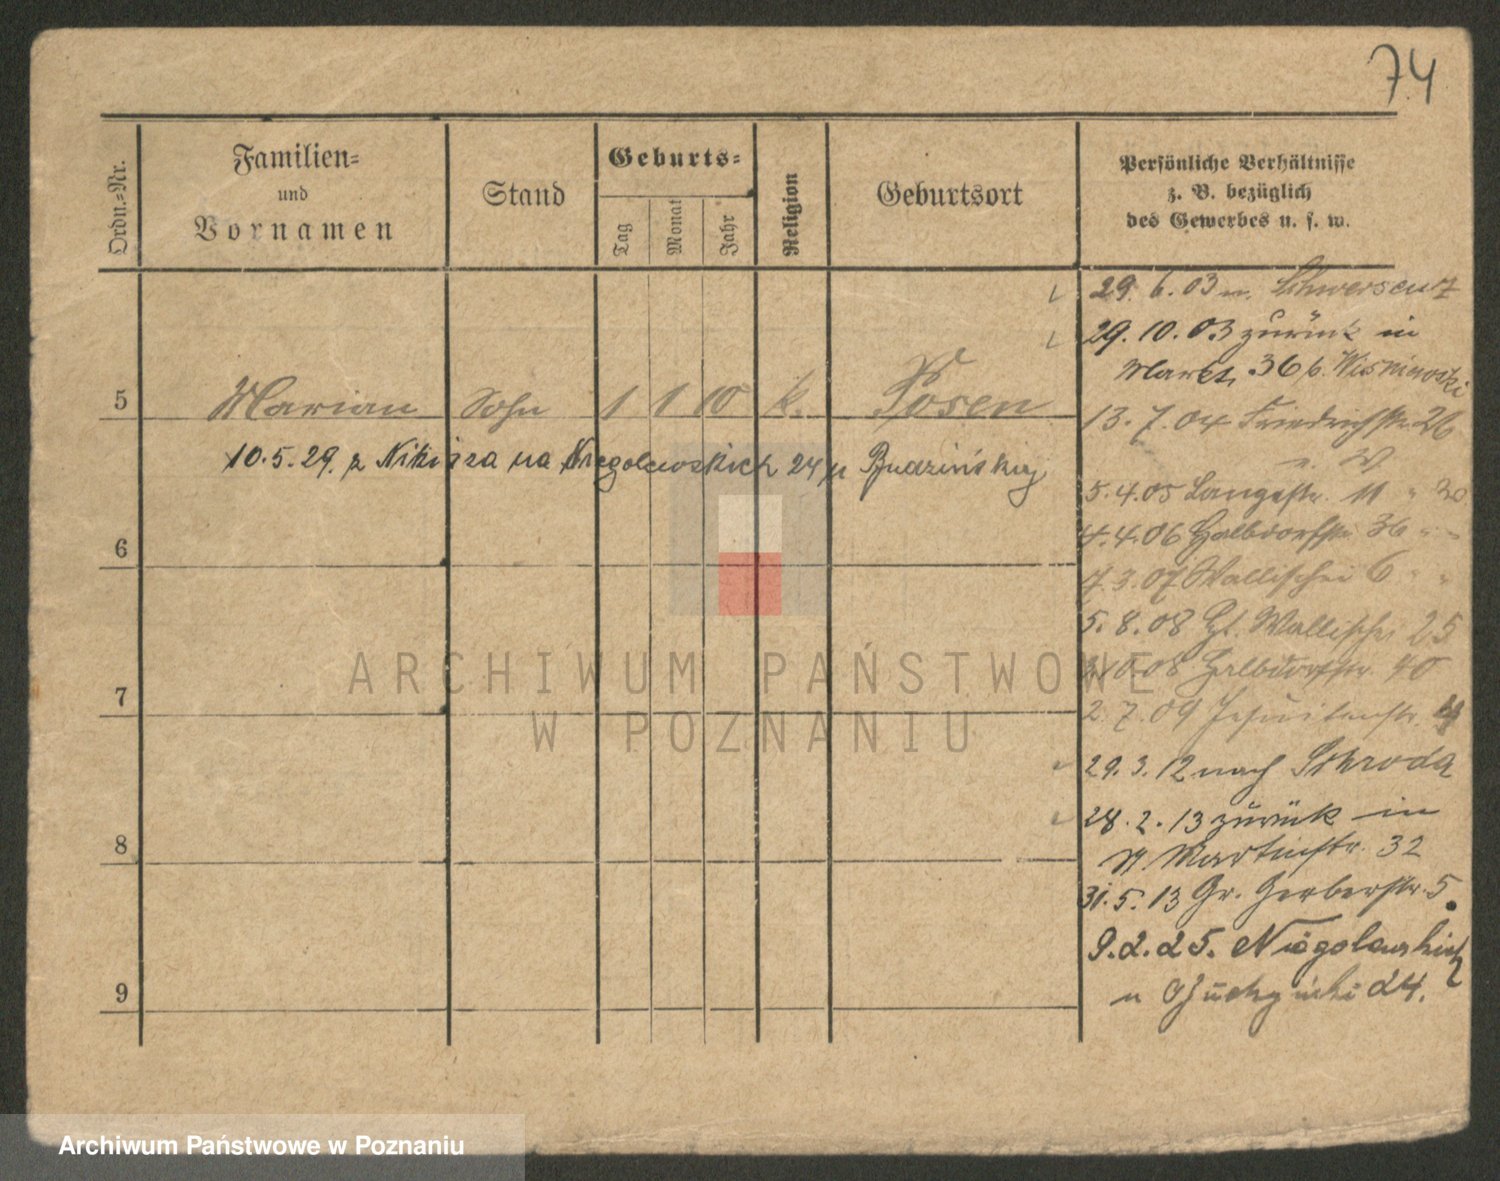 74
Ordn.-Nr.
Familien-
und
Vornamen
Stand
Geburts-
Tag
Monat
Jahr
Religion
Geburtsort
Persönliche Verhältnisse
z. B. bezüglich
des Gewerbes u. s. w.
5 Marian Sohn 1 1 10 k. Posen
10.5.29. z Nikisza na Niegolewskich 24 u Budzińskiej
6
7
8
9
29. 6. 03 n. Schwersenz
29. 10. 03 zurück in
Markt 36 b. Wisniewski
13. 7. 04 Friedrichstr. 26
5. 4. 05 Langestr. 11 " 30
4. 4. 06 Halbdorfstr. 36 " "
7. 3. 07 Wallischei 6 " "
5. 8. 08 Wallischei 25
10.08 Halbdorfstr. 40
2. 7. 09 Jesuitenstr. 4
29. 3. 12 nach Schroda
28. 2. 13 zurück in
St. Martinstr. 32
31. 5. 13 Gr. Gerberstr. 5.
9. 2. 25. Niegolewskich
u 24.
ARCHIWUM PAŃSTWOWE
W POZNANIU
Archiwum Państwowe w Poznaniu